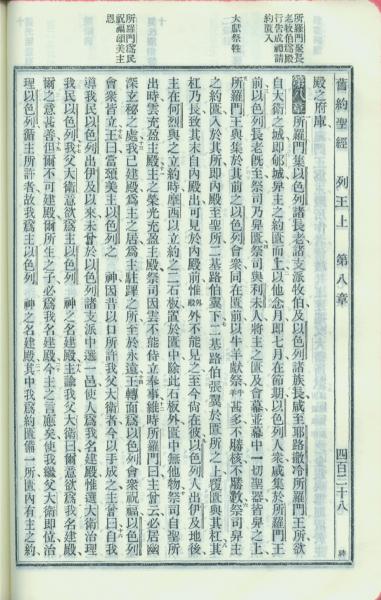 舊約聖經 列王上 第八章 四百二十八
所羅門聚長
老牧伯爲殿
行告成禮請
約匱入
大獻祭牲
所羅門爲民
祝福頌美主
恩
殿之府庫、
第八章 所羅門集以色列諸長老諸支派牧伯及以色列諸族長咸至耶路撒冷所羅門王所欲
自大衛之城即郇城舁主之約匱而上以他念月即七月在節期以色列人衆咸集於所羅門王
前以色列長老旣至祭司乃舁匱祭司與利未人將主之匱及會幕並幕中一切聖器皆舁之上
所羅門王與集於其前之以色列會衆同在匱前以牛羊獻祭牛羊甚多不勝核不勝數祭司舁主
之約匱入於其所即內殿至聖所二基路伯翼下二基路伯張翼於匱所之上覆匱與其杠其
杠乃長致其末自內殿出可見於內殿前惟殿外不能見之至今尚在彼以色列人出伊及地後
主在何烈與之立約時摩西以立約之二石板置於匱中除此石板外匱中無他物祭司自聖所
出時雲充盈主殿主之榮光充盈主殿祭司因雲不能侍立奉事維時所羅門曰主曾云必居幽
深玄秘之處我已建殿爲主之居爲主駐蹕之所至於永遠王轉面爲以色列會衆祝福以色列
會衆皆立王曰當頌美主以色列之 神因昔以口所許於我父大衛者今以手成之主曾曰自我
導我民以色列出伊及以來未甞於以色列諸支派中選一邑使人爲我名建殿惟選大衛治理
我民以色列我父大衛意欲爲主以色列 神之名建殿主諭我父大衛曰爾意欲爲我名建殿、
爾之意甚善但爾不可建殿爾所生之子必爲我名建殿今主之言應矣使我繼父大衛即位治
理以色列循主所許者故我爲主以色列 神之名建殿其中我爲約匱備一所匱內有主之約